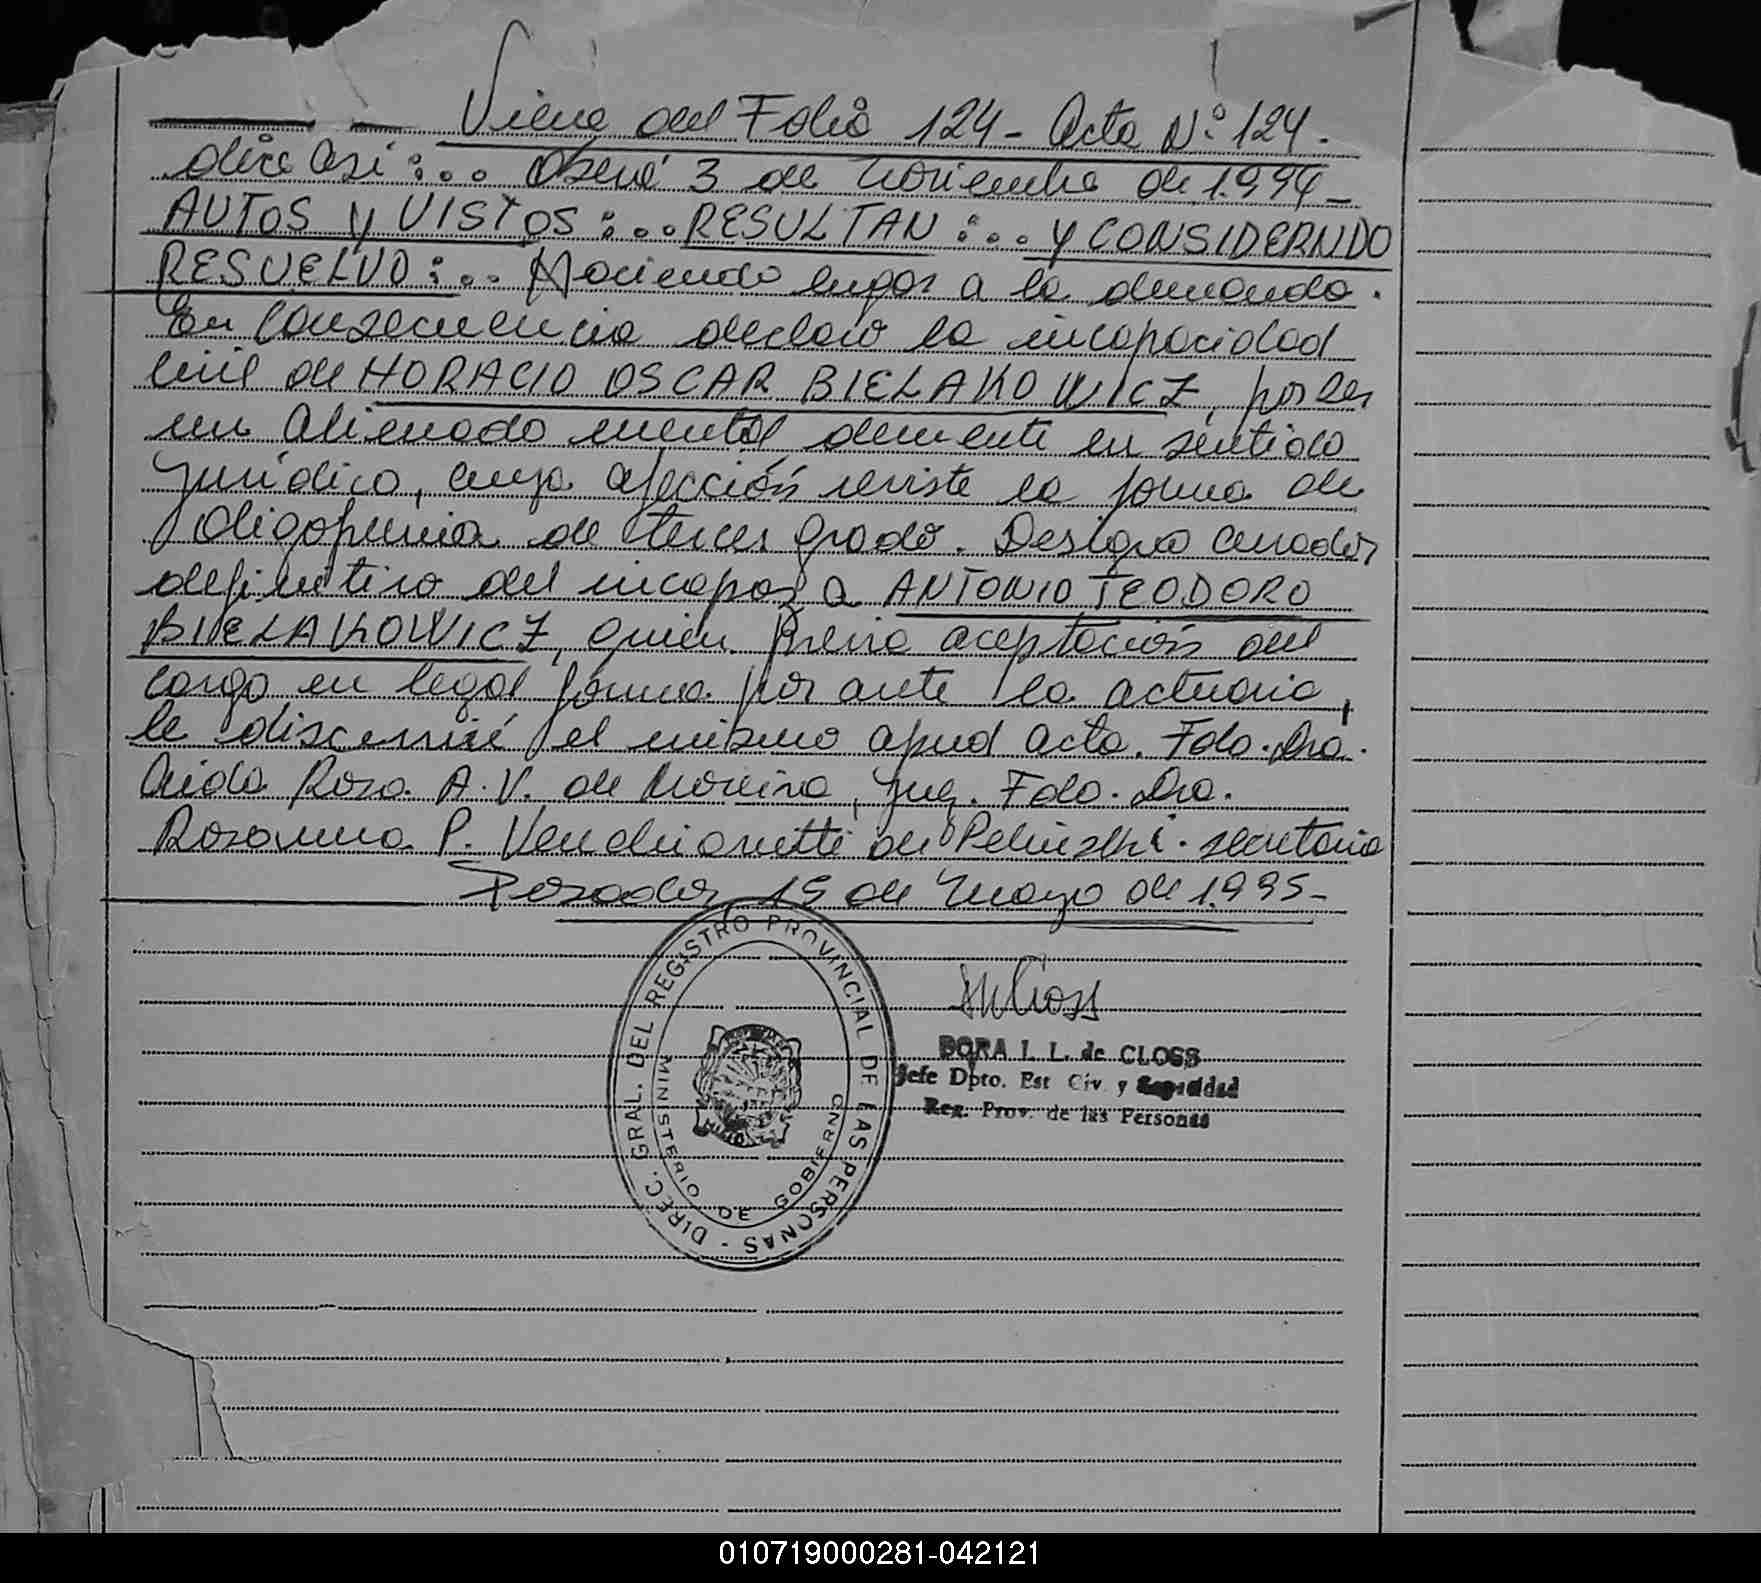 Viene del Folio 124 - Acta Nº 124.
dice asi:... Oberá 3 de Noviembre de 1.994_
AUTOS Y VISTOS:... RESULTAN:... Y CONSIDERNDO
RESUELVO:... Haciendo lugar a la demanda.
En Consecuencia declaro la incapacidad
Civil de HORACIO OSCAR BIELAKOWICZ, por ser
un alienado mental demente en sentido
Jurídico, cuya afección reviste la forma de
Oligofrenia de tercer grado. Designo Curador
definitivo del incapaz a ANTONIO TEODORO
BIELAKOWICZ, quien previa aceptación del
cargo en legal forma por ante la actuaria,
le discerniré el mismo apud acta. Fdo. Dra.
Aida Rosa A. V. de Moreira, Juez. Fdo. Dra.
Rosanna P. Venchiarutti de secretaria
Posadas, 15 de Mayo de 1.995-
DIREC. GRAL. DEL REGISTRO PROVINCIAL DE LAS PERSONAS -
MINISTERIO DE GOBIERNO
DORA I. L. de CLOSS
Jefe Dpto. Est Civ. y Capacidad
Reg. Prov. de las Personas
010719000281-042121